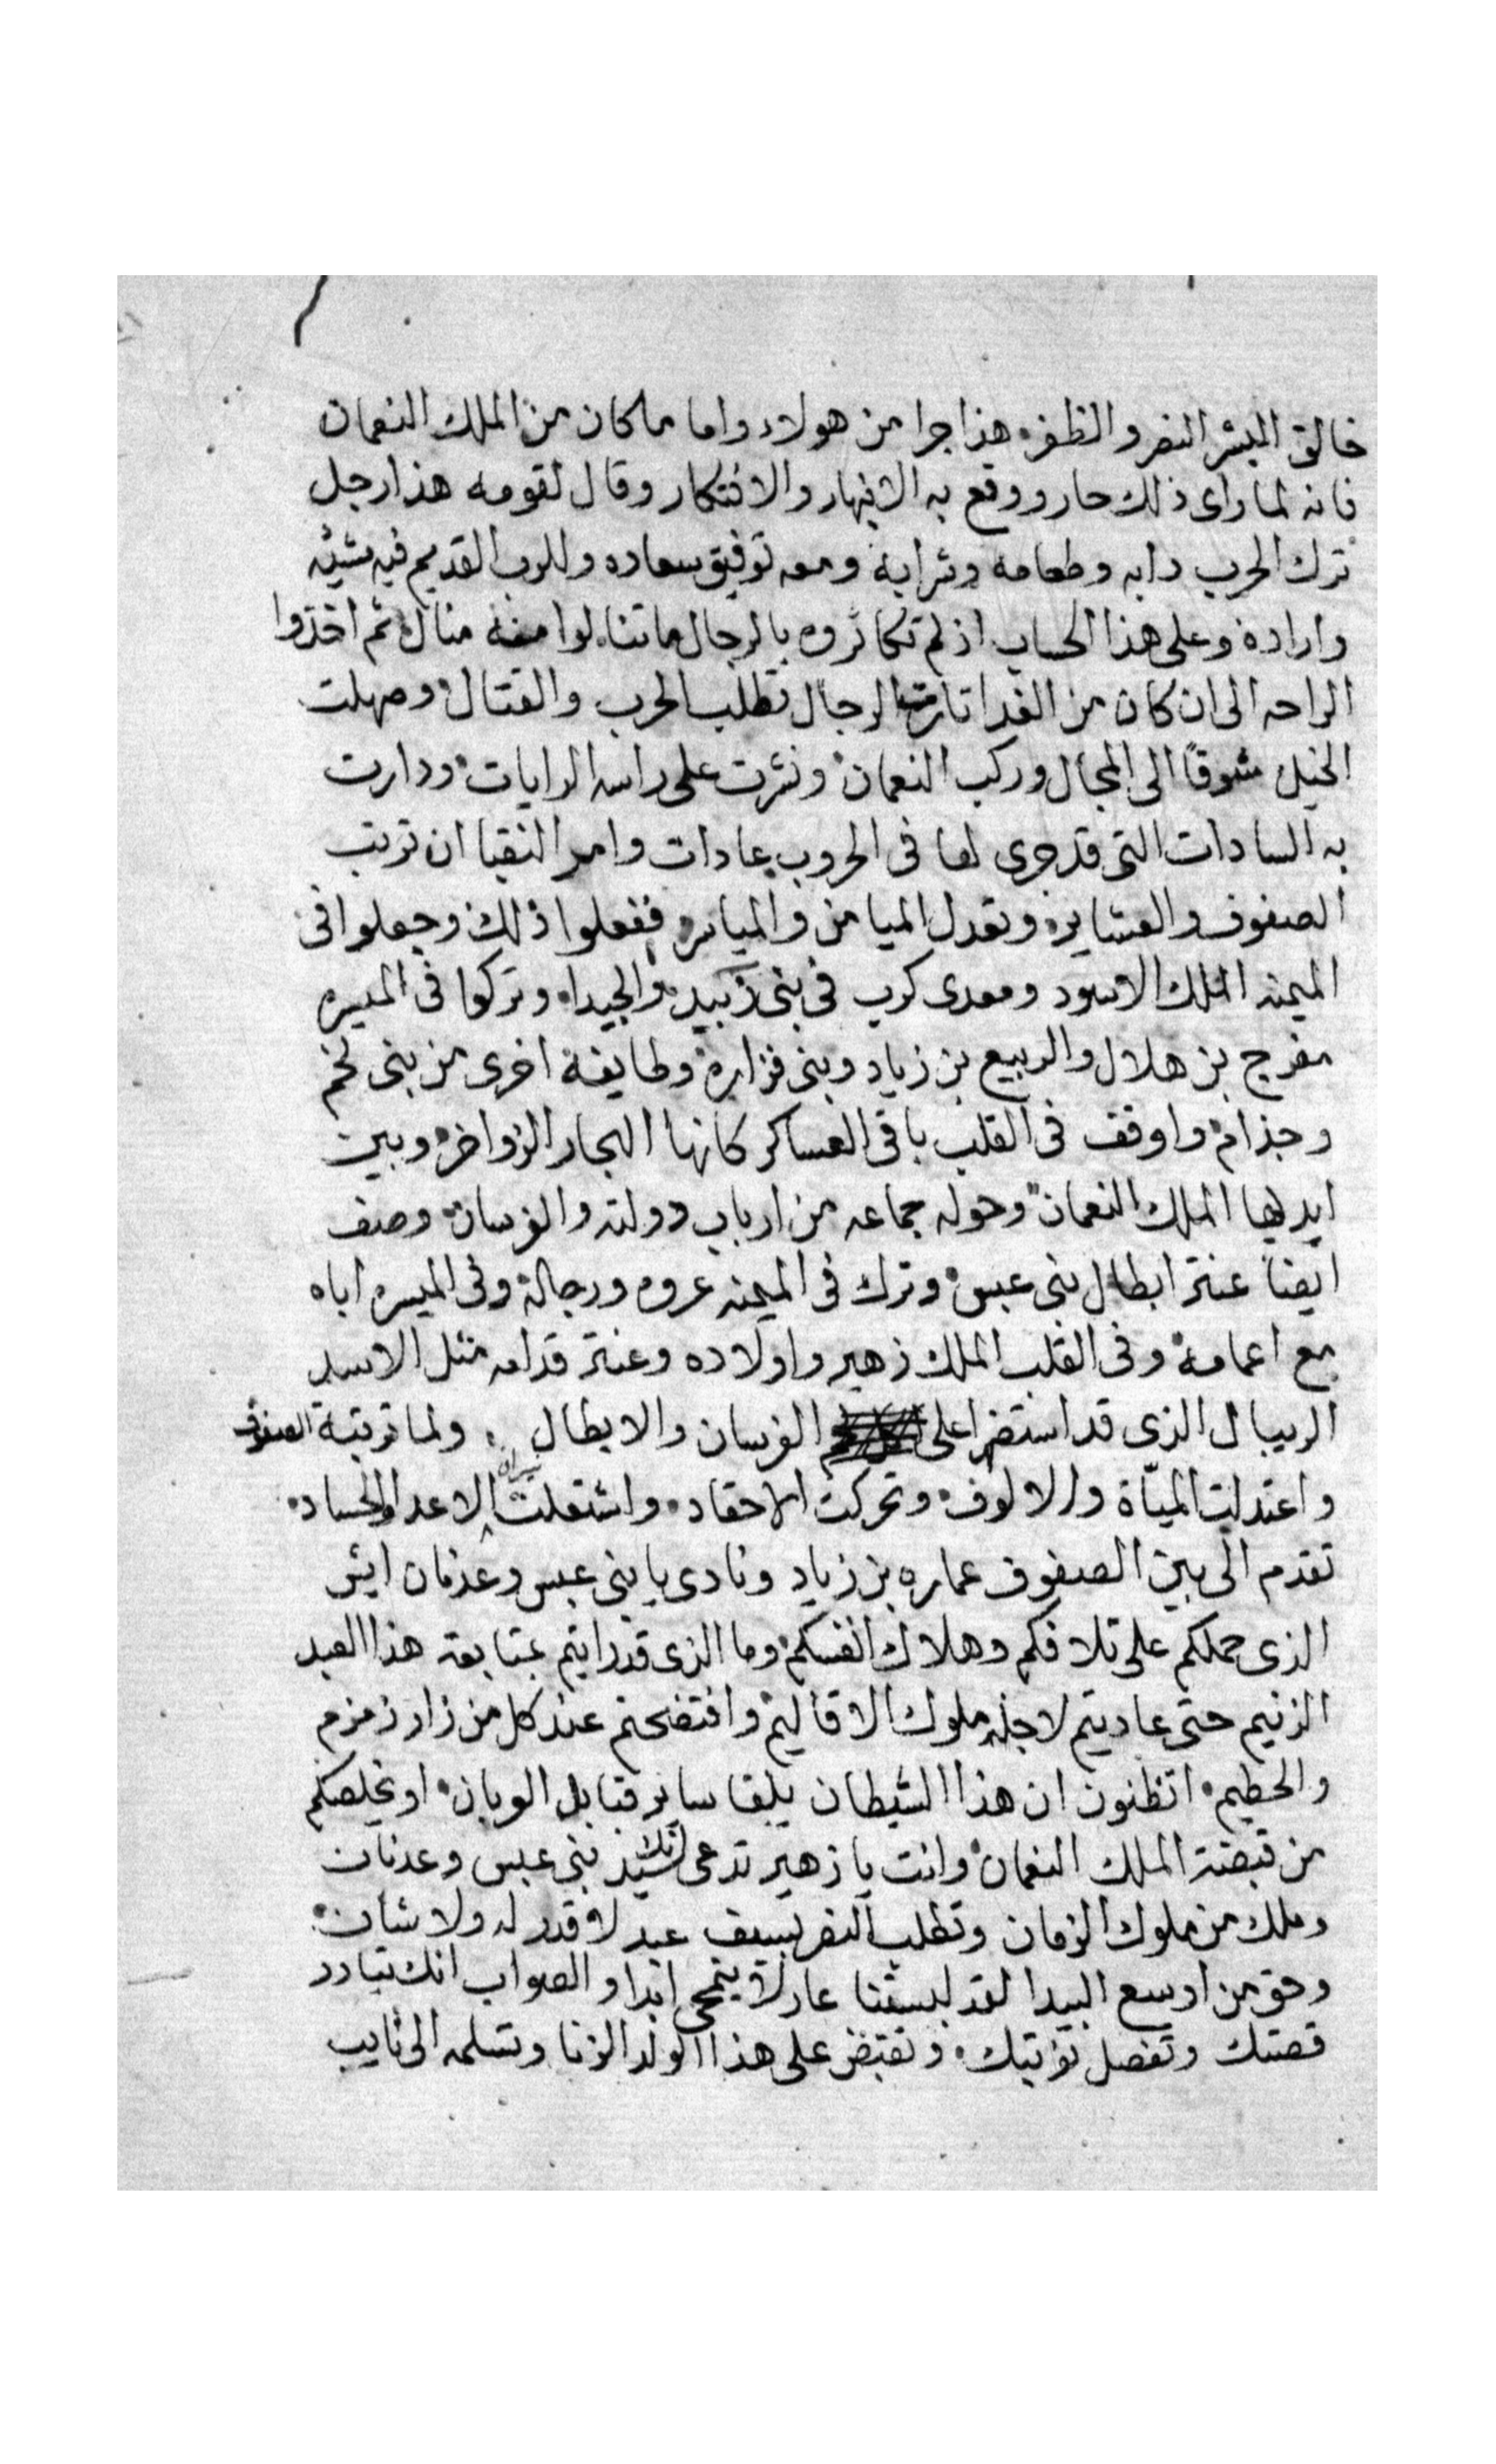 خالق البشر النصر والظفر. هذا جرا من هولاء واما ما كان من الملك النعمان
فانه لما راى ذلك حار ووقع به الانبهار والافتكار وقال لقومه هذا رجل
ترك الحرب دابه وطعامه وشرابه ومعه توفيق سعاده وللرب القديم فيه مشيئه
وارادة وعلى هذا الحساب اذ لم تكاثروه بالرجال ما تنالوا منه منال ثم اخذوا
الراحه الى ان كان من الغد الرجال تطلب الحرب والقتال وصهلت
الخيل شوقاً الى المجال وركب النعمان ونشرت على راسه الرايات ودارت
به السادات التى قد جرى لها فى الحروب عادات وامر النقبا ان ترتب
الصفوف والعشاير. وتعدل الميامن والمياسر ففعلوا ذلك وجعلوا فى
الميمنه الملك الاسود ومعدى كرب فى بنى زبيد والجيدا. وتركوا فى الميسره
مفرج بن هلال والربيع بن زياد وبنى فزارة وطايفة اخرى من بنى لخم
وجذام واوقف فى القلب باقى العساكر كانها البحار الزواخر وبين
ايديها الملك النعمان وحوله جماعه من ارباب دولته والفرسان وصف
ايضاً عنتر ابطال بنى عبس وترك فى الميمنه عروه ورجالة وفى الميسره اباه
مع اعمامه وفى القلب الملك زهير واولاده وعنتر قدامه مثل الاسد
الريبال الذى قد على الفرسان والابطال. ولما ترتبة الصفوف
واعتدلت الميأة والالوف وتحركت الاحقاد. واشتعلت نيران الاعدا والحساد.
تقدم الى بين الصفوف عماره بن زياد ونادى يا بنى عبس وعدنان ايش
الذى حملكم على تلافكم وهلاك انفسكم وما الذى قد رايتم بمتابعة هذا العبد
الزنيم حتى عاديتم لاجله ملوك الاقاليم وافتضحتم عند كل من زار زمزم
والحطيم. اتظنون ان هذا الشيطان يلقا ساير قبايل العربان. او يخلصكم
من قبضة الملك النعمان وانت يا زهير تدعى انك سيد بنى عبس وعدنان
وملك من ملوك الزمان وتطلب النصر بسيف عبد لا قدر له ولا شان
وحق من اوسع البيدا لقد لبستنا عار لا ينمحى ابدا والصواب انك تبادر
قصتك وتفصل نوبتك. وتقبض على هذا الولد الزنا وتسلمه الى نايب